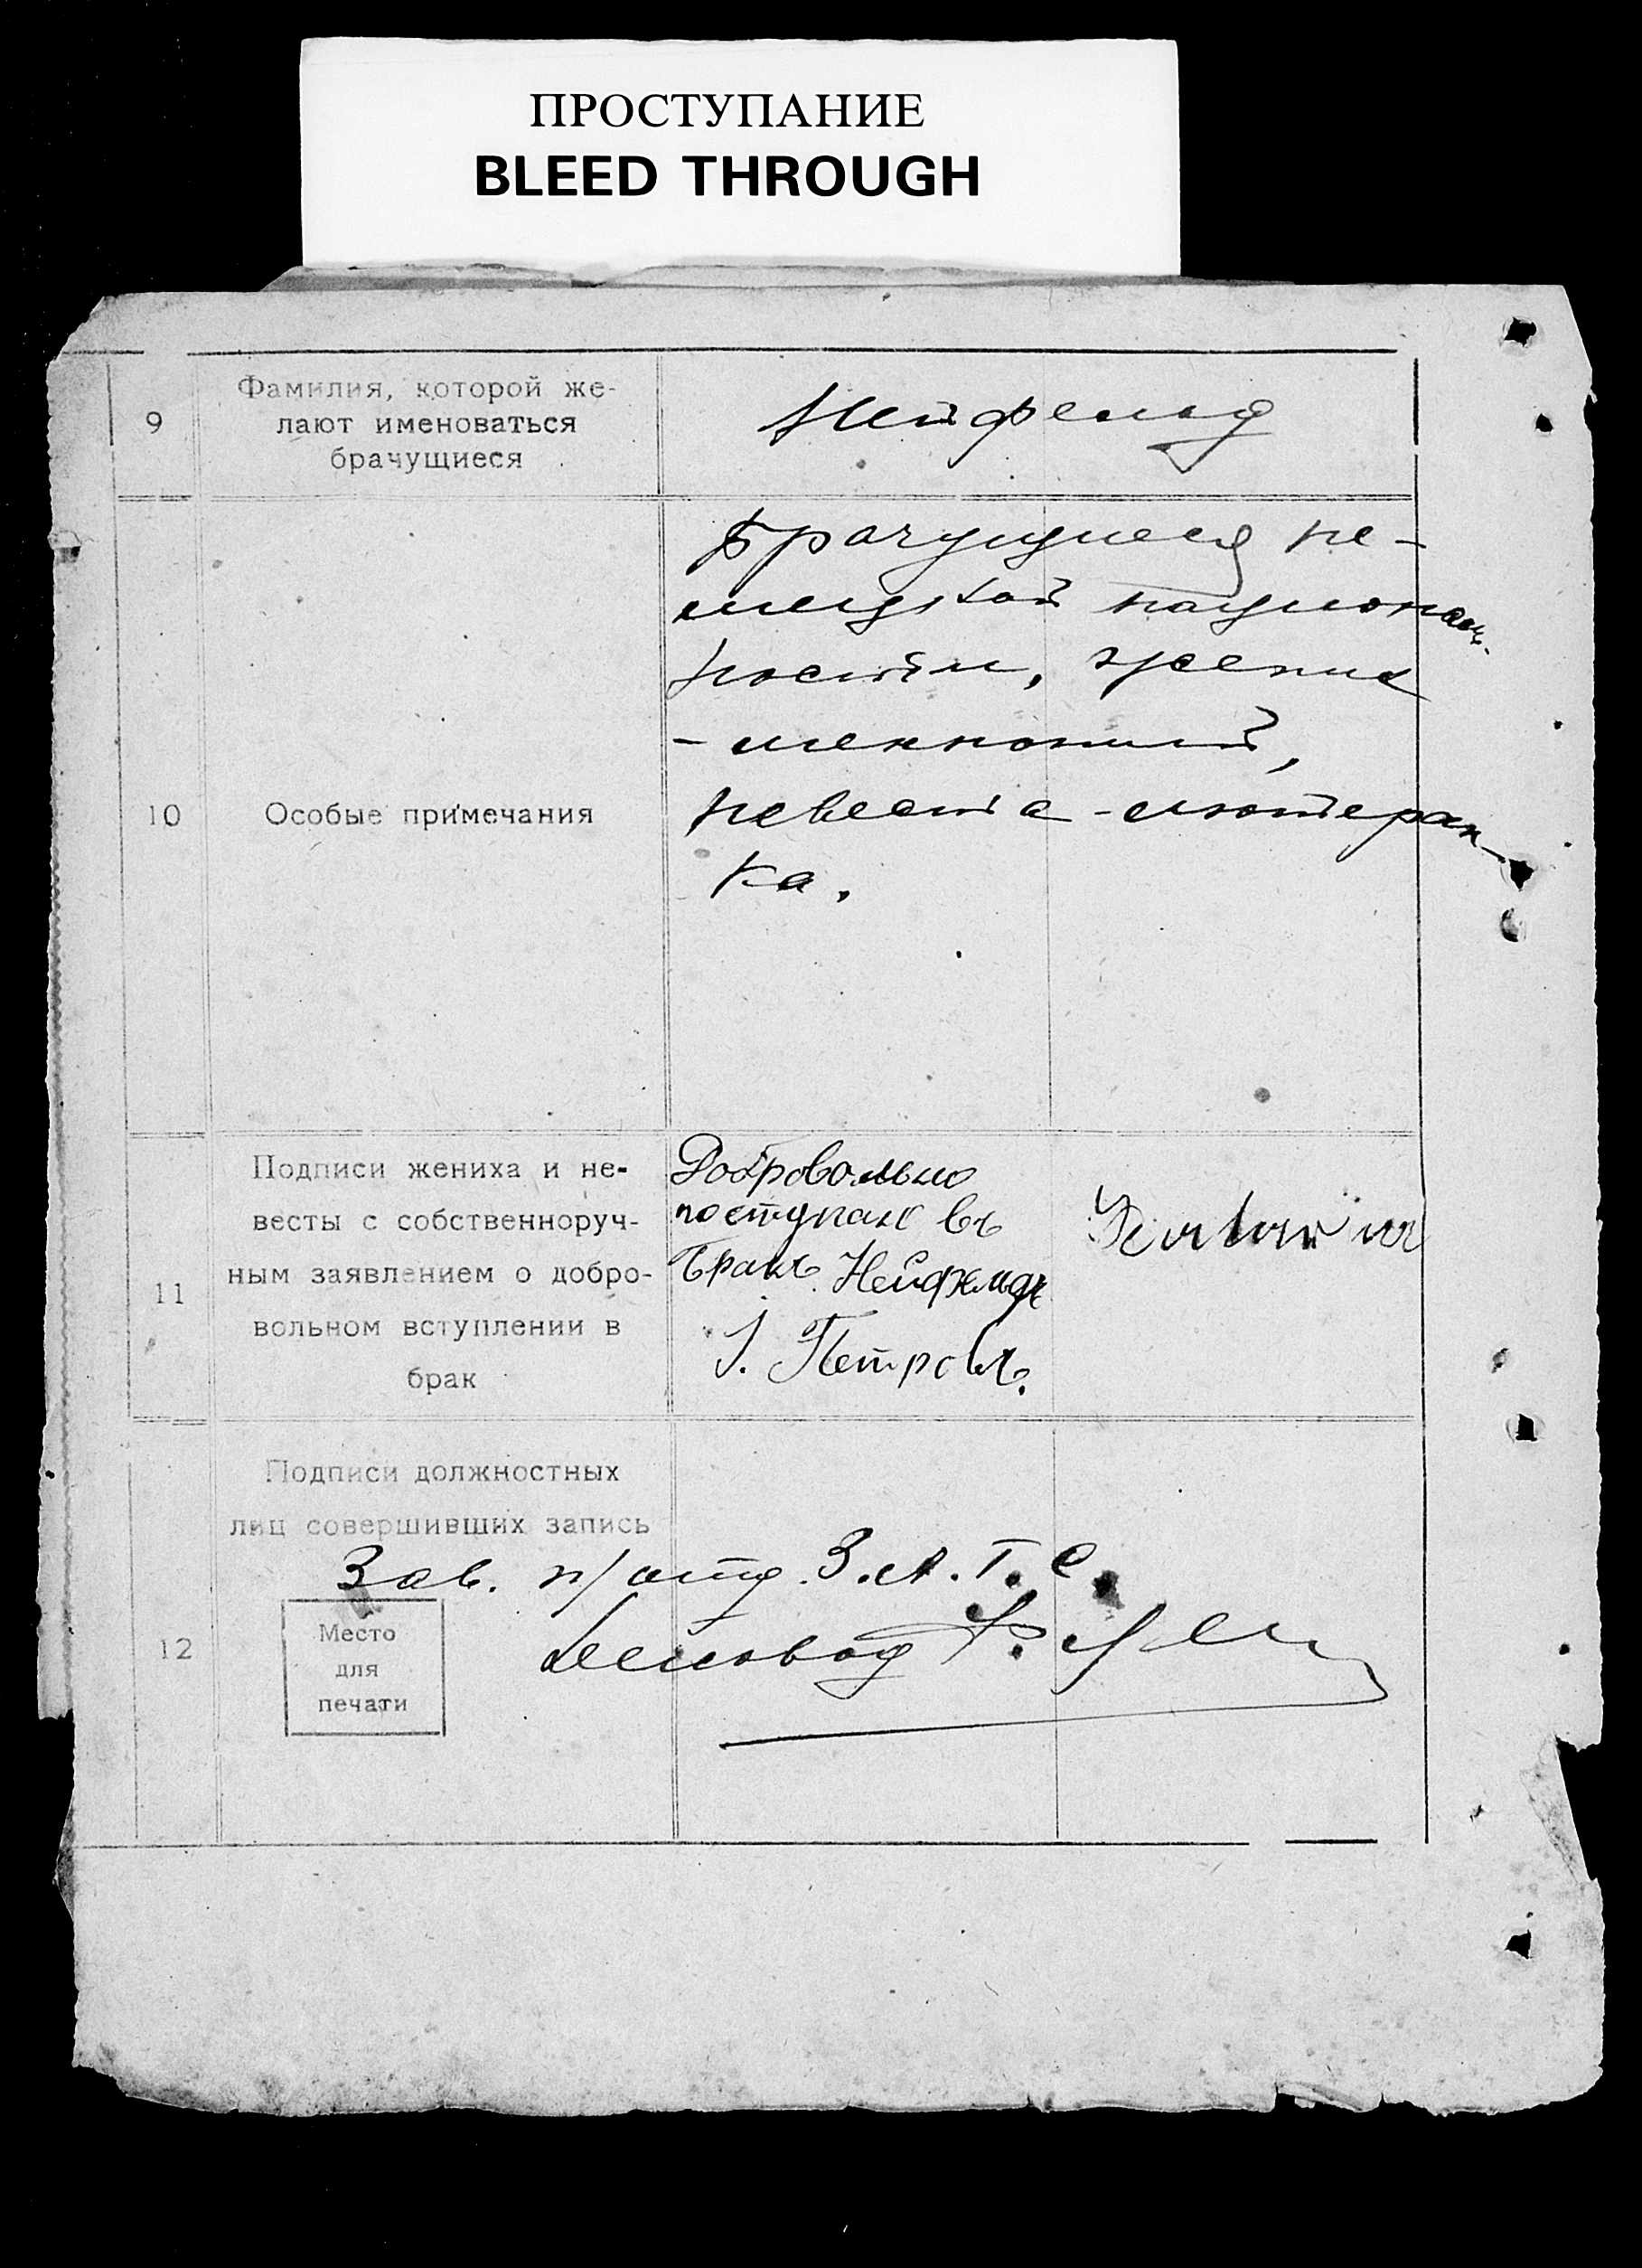 ПРОСТУПАНИЕ
BLEED THROUGH
9
Фамилия, которой же-
лают именоваться
брачущиеся
Нейфельд
10
Особые примечания
Брачущиеся не-
мецкой националь-
ности, жених
- меннонит,
невеста - лютеран-
ка.
11
Подписи жениха и не-
весты с собственноруч-
ным заявлением о добро-
вольном вступлении в
брак
Добровольно
поступаю въ
Бракъ Нейфельдъ
І. Петровъ.
12
Подписи должностных
лиц совершивших запись
Зав. п/отд. З.А.Г.С.
Деловод
Место
для
печати